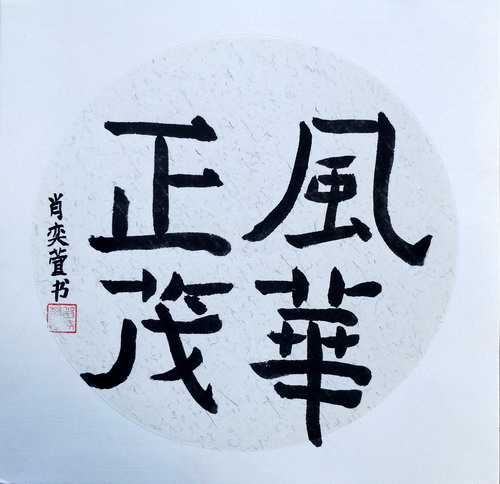 風華
正茂
肖奕萱书